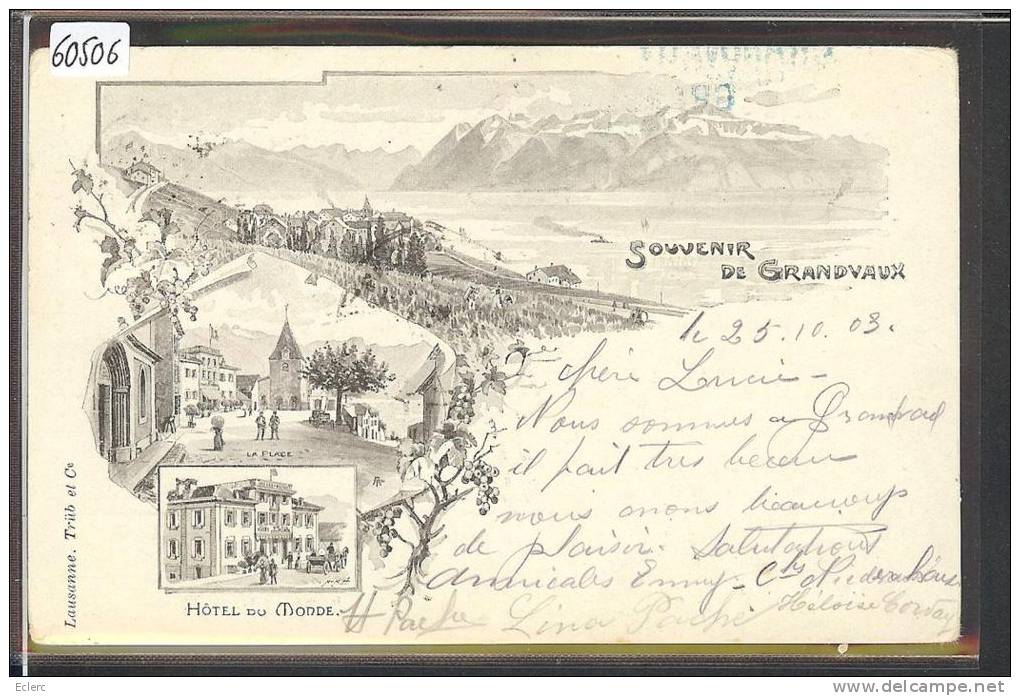 60506
SOUVENIR
DE GRANDVAUX
le 25.10.03.
chère Lucie -
Nous sommes a
il fait tres beau
nous avons beaucoup
de plaisir. Salutations
Amicales Emmy - Chs
Héloïse
H Pache Lina Pache
LA PLACE
HÔTEL DU MONDE.
Lausanne. Trüb et Cᵉ
Eclerc
delcampe.net